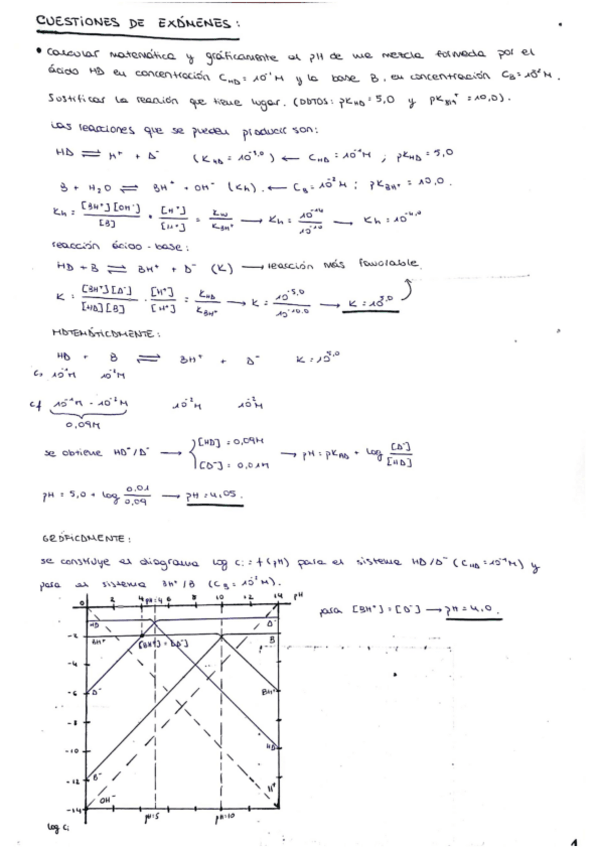 CUESTIONES DE EXÁMENES:
• Calcular matemática y gráficamente el pH de una mezcla formada por el
ácido HA en concentración C_HA = 10⁻¹M y la base B, en concentración C_B = 10⁻²M.
Justificar la reacción que tiene lugar. (DATOS: pK_HA = 5,0 y pK_BH⁺ = 10,0).
Las reacciones que se pueden producir son:
HA ⇌ H⁺ + A⁻ (K_HA = 10⁻⁵,⁰) ← C_HA = 10⁻¹M ; pK_HA = 5,0
B + H₂O ⇌ BH⁺ + OH⁻ (Kh). ← C_B = 10⁻²M ; pK_BH⁺ = 10,0.
Kh = [BH⁺][OH⁻]/[B] · [H⁺]/[H⁺] = Kw/K_BH⁺ → Kh = 10⁻¹⁴/10⁻¹⁰ → Kh = 10⁻⁴,⁰
reacción ácido-base:
HA + B ⇌ BH⁺ + A⁻ (K) → reacción más favorable.
K = [BH⁺][A⁻]/[HA][B] · [H⁺]/[H⁺] = K_HA/K_BH⁺ → K = 10⁻⁵,⁰/10⁻¹⁰,⁰ → K = 10⁵,⁰
MATEMÁTICAMENTE:
HA + B ⇌ BH⁺ + A⁻ K = 10⁵,⁰
c₀ 10⁻¹M 10⁻²M
cf 10⁻¹M - 10⁻²M 10⁻²M 10⁻²M
0,09M
se obtiene HA/A⁻ → { [HA] = 0,09M
[A⁻] = 0,01M → pH = pK_HA + log [A⁻]/[HA]
pH = 5,0 + log 0,01/0,09 → pH = 4,05.
GRÁFICAMENTE:
se construye el diagrama log ci = f(pH) para el sistema HA/A⁻ (C_HA = 10⁻¹M) y
para el sistema BH⁺/B (C_B = 10⁻²M).
0 2 4 pH=4 6 8 10 12 14 pH
para [BH⁺] = [A⁻] → pH = 4,0.
HA A⁻
-2 BH⁺ [BH⁺] = [A⁻] B
-4
-6 A⁻ BH⁺
-8
-10 HA
-12 B
H⁺
-14 OH⁻
log ci pH=5 pH=10
1